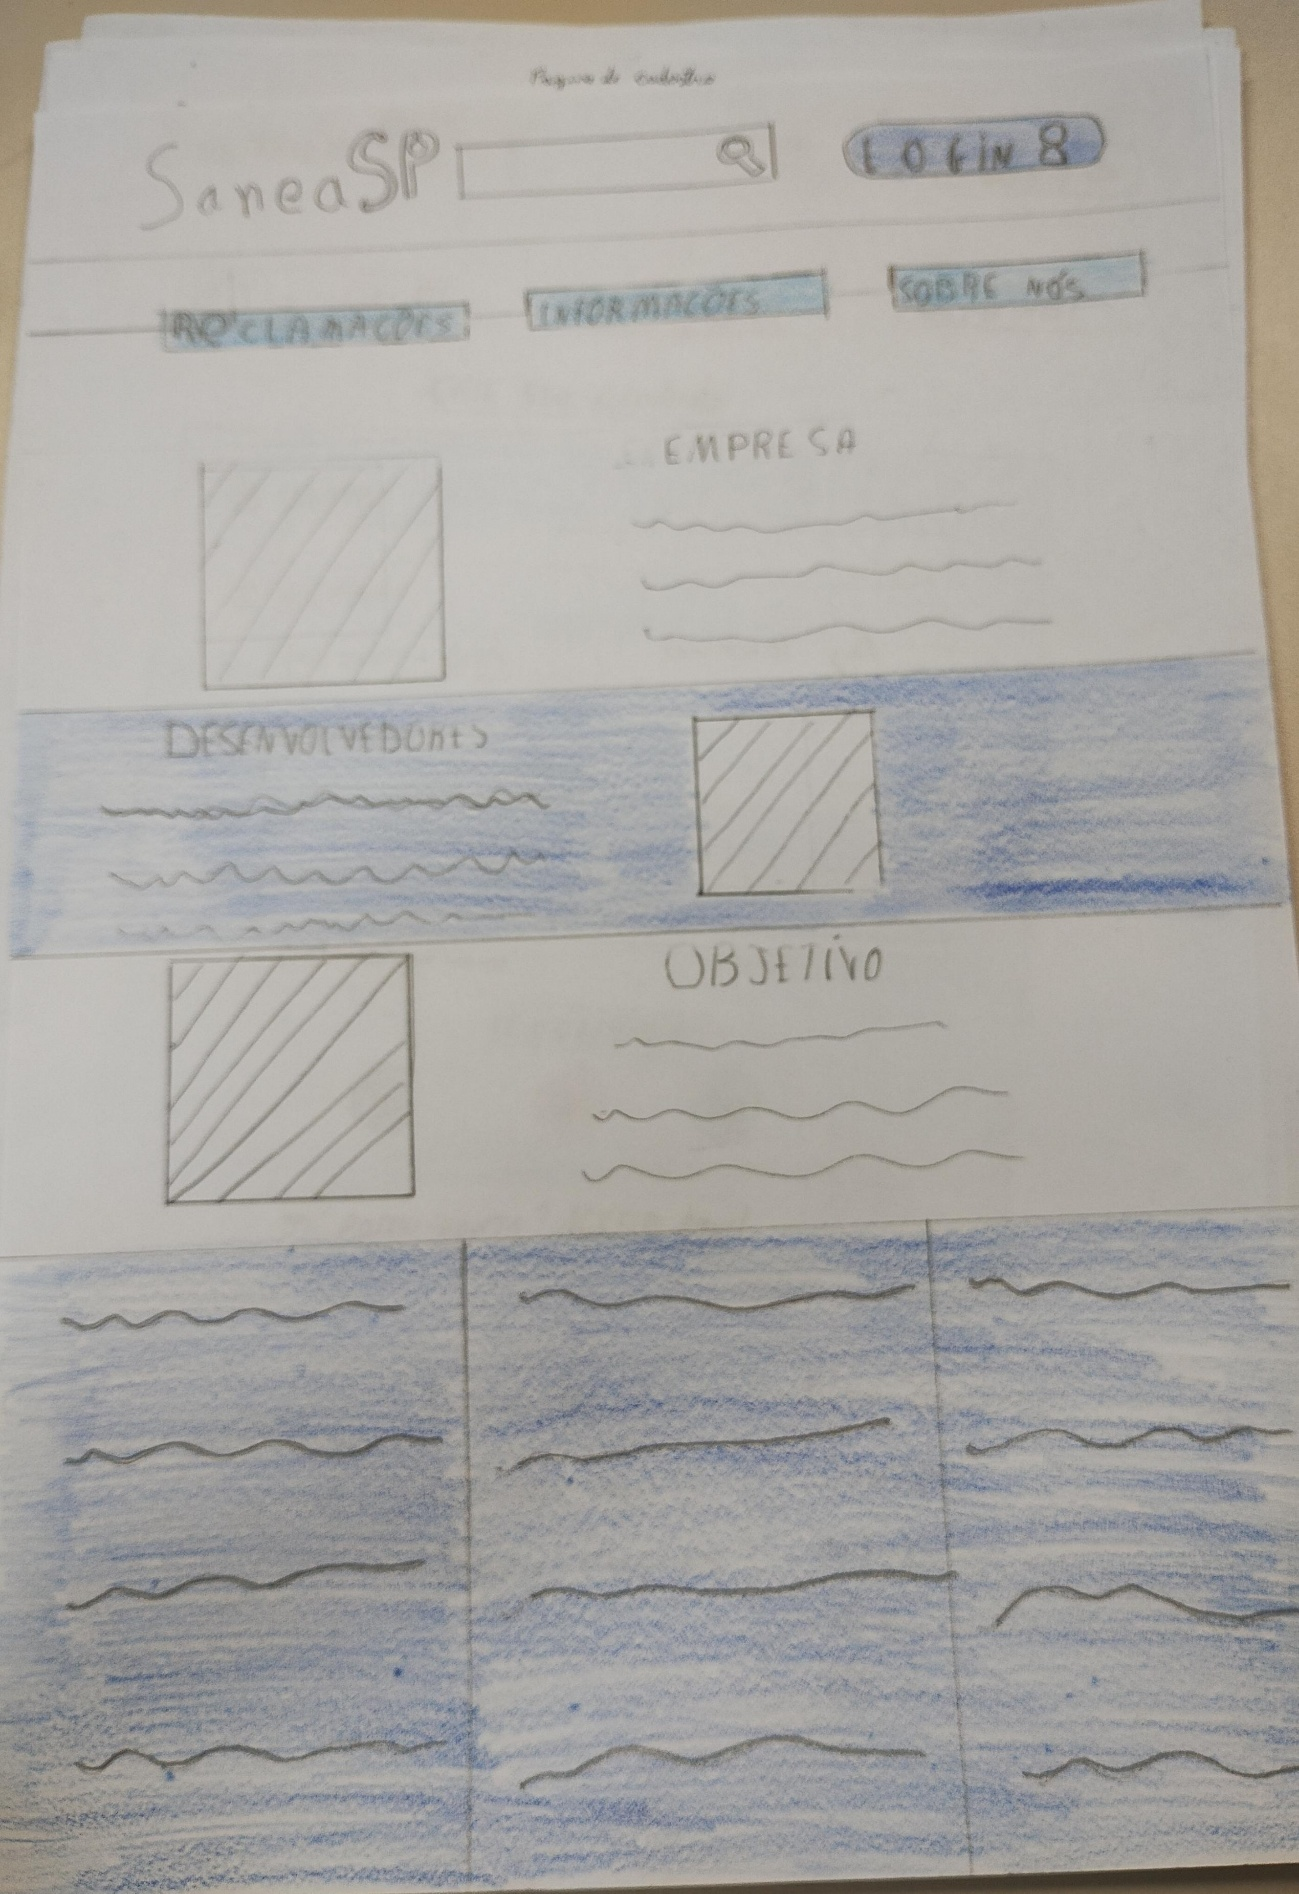 SaneaSP
LOGIN
RECLAMAÇÕES
INFORMAÇÕES
SOBRE NÓS
EMPRESA
DESENVOLVEDORES
OBJETIVO